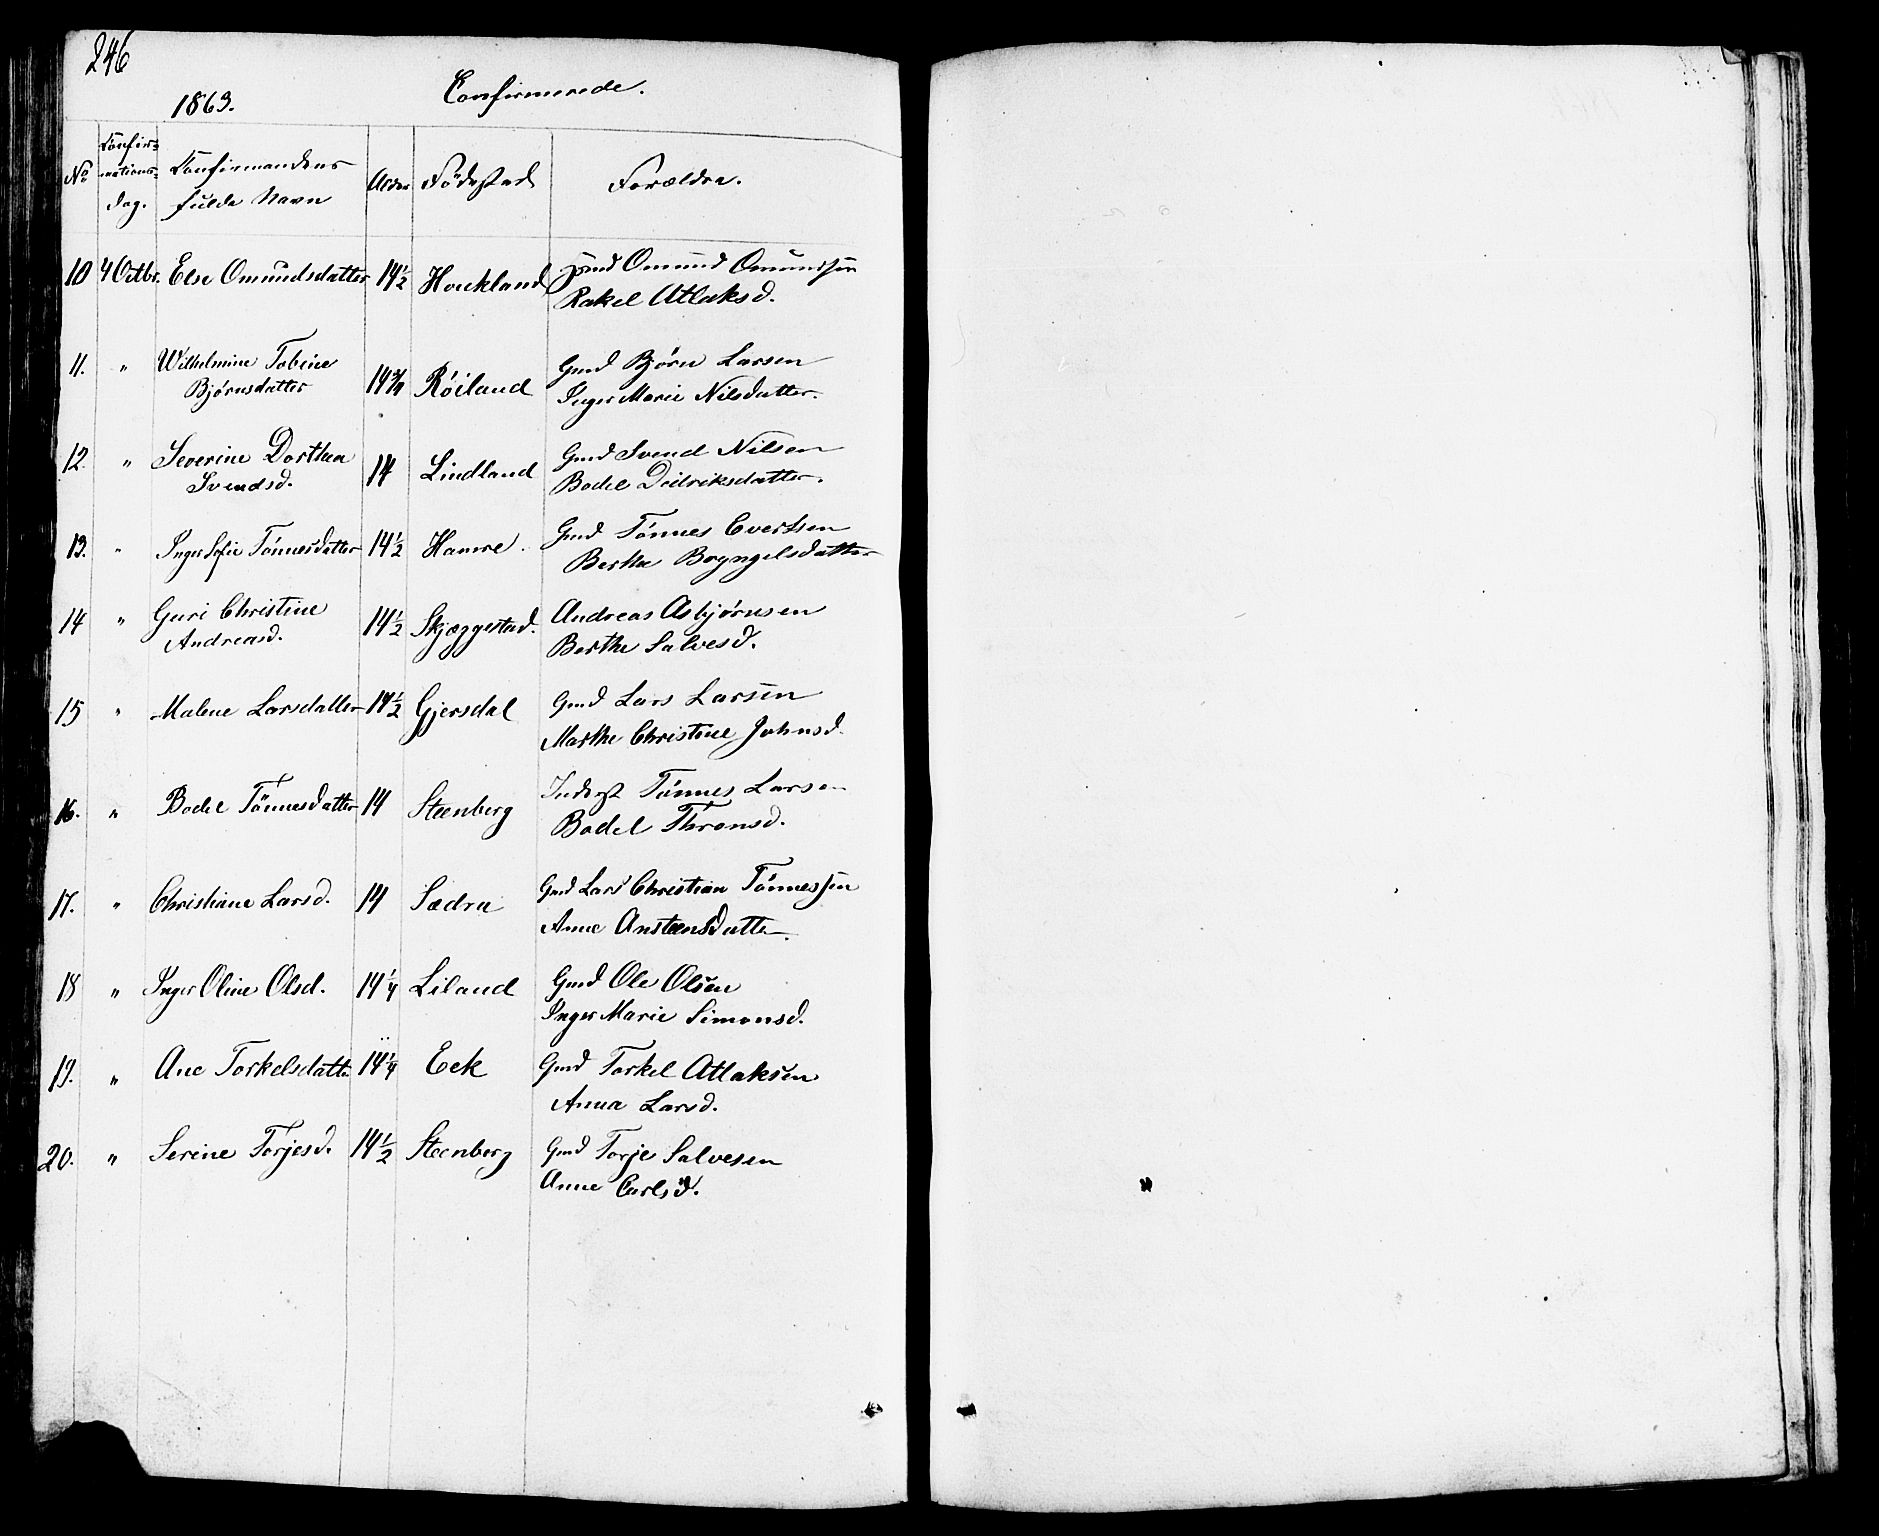 246
1863. Confirmerede.
No Confir= mations= dag. Confirmandens fulde Navn Alder Fødested Forældre.
10 4 Octbr. Else Omundsdatter 14½ Houkland Gmd Omund Omundsen
Rakel Atlaksd.
11. " Wilhelmine Tobine Bjørnsdatter 14¾ Röiland Gmd Bjørn Larsen
Inger Marie Nilsdatter.
12. " Severine Dorthea Svendsd. 14 Lindland Gmd Svend Nilsen
Bodel Didriksdatter.
13. " Inger Sofie Tønnesdatter 14½ Hamre. Gmd Tønnes Evertsen
Berthe Bryngelsdatter
14 " Guri Christine Andreasd. 14½ Skjæggestad. Andreas Asbjørnsen
Berthe Salvesd.
15 " Malene Larsdatter 14½ Gjersdal Gmd Lars Larsen
Marthe Christine Johnsd.
16. " Bodel Tönnesdatter 14 Steenberg Inderst Tønnes Larsen
Bodel Thronsd.
17. " Christiane Larsd. 14 Sædra Gmd Lars Christian Tønnessen
Anne Anstensdatter.
18 " Inger Oline Olsd. 14¼ Liland Gmd Ole Olsen
Inger Marie Simonsd.
19. " Ane Torkelsdatter 14¼ Eek Gmd Torkel Atlaksen
Anna Larsd.
20. " Serine Torjesd. 14½ Steenberg Gmd Torje Salvesen
Anne Carlsd.